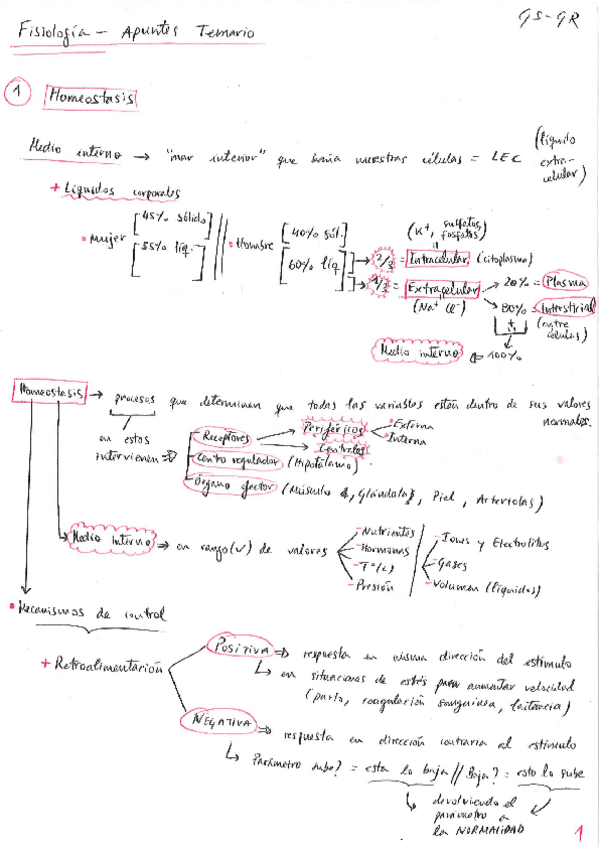 GS-GR
Fisiología - Apuntes Temario
1 Homeostasis
Medio interno → "mar interior" que baña nuestras células = LEC (líquido extra-celular)
+ Líquidos corporales
• Mujer [45% sólido] [55% líq.] • Hombre [40% sól.] [60% líq]
(K+, sulfatos, fosfatos)
→ 2/3 = Intracelular (citoplasma)
→ 1/3 = Extracelular → 20% = Plasma
(Na+ Cl-) → 80% = Intersticial
(entre células)
Medio interno ⇐ 100%
Homeostasis → procesos que determinen que todas las variables estén dentro de sus valores normales.
en estos intervienen ⇒
Receptores → Periféricos - Externa - Interna
→ Centrales
Centro regulador (Hipotálamo)
Órgano efector (Músculo, Glándulas, Piel, Arteriolas)
Medio Interno ⇒ en rango(v) de valores
- Nutrientes
- Hormonas
- Tª(c)
- Presión
- Iones y Electrolitos
- Gases
- Volumen (líquidos)
• Mecanismos de control
+ Retroalimentación
POSITIVA ⇒ respuesta en misma dirección del estímulo
↳ en situaciones de estrés para aumentar velocidad
(parto, coagulación sanguínea, lactancia)
NEGATIVA ⇒ respuesta en dirección contraria al estímulo
↳ Parámetro sube? = esta lo baja // Baja? = esto lo sube
↳ devolviendo el
parámetro a
la NORMALIDAD
1